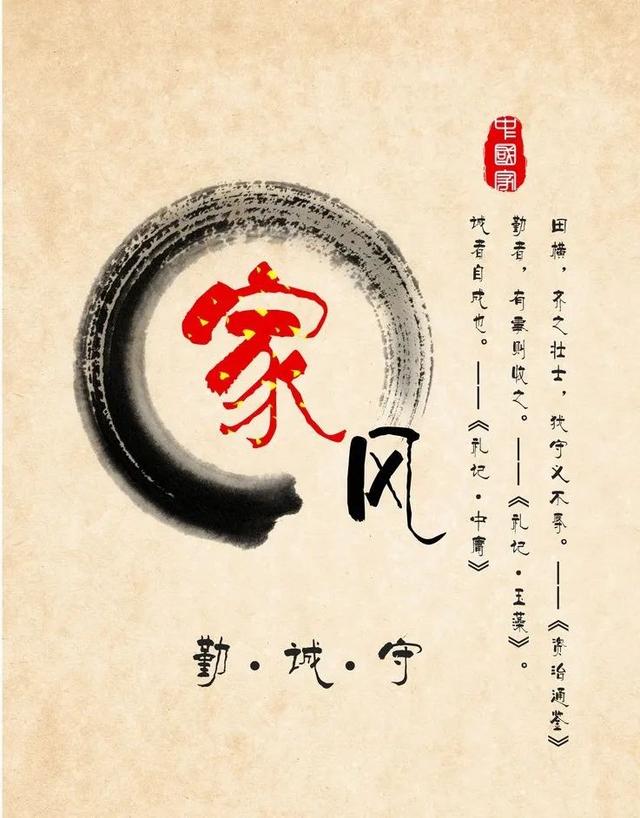 中國家
田横，齐之壮士，犹守义不辱。——《资治通鉴》
勤者，有事则收之。——《礼记·玉藻》。
诚者自成也。——《礼记·中庸》
家风
勤·诚·守